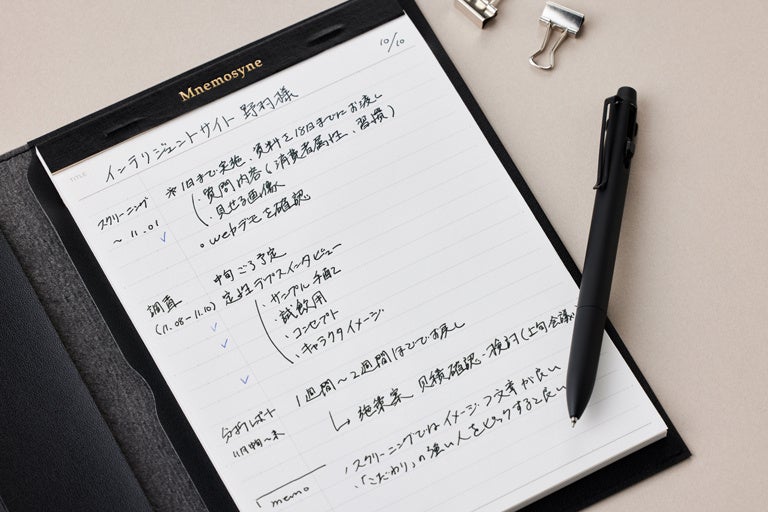 Mnemosyne
10/10
TITLE
インテリジェントサイト 野村様
スクリーニング
～11.01
※1日まで実施、資料を18日までにお渡し
・質問内容(消費者属性、習慣)
・見せる画像
・webデモを確認
調査
(11.08-11.10)
中旬ごろ予定
定性デプスインタビュー
・サンプル手配
・試飲用
・コンセプト
・キャラクタイメージ
分析レポート
11月中旬～末
1週間～2週間ほどでお戻し
↳ 施策案 見積確認・検討(上旬会議
memo
・スクリーニングではイメージ2つ文章が良い
・「こだわり」の強い人をピックすると良い